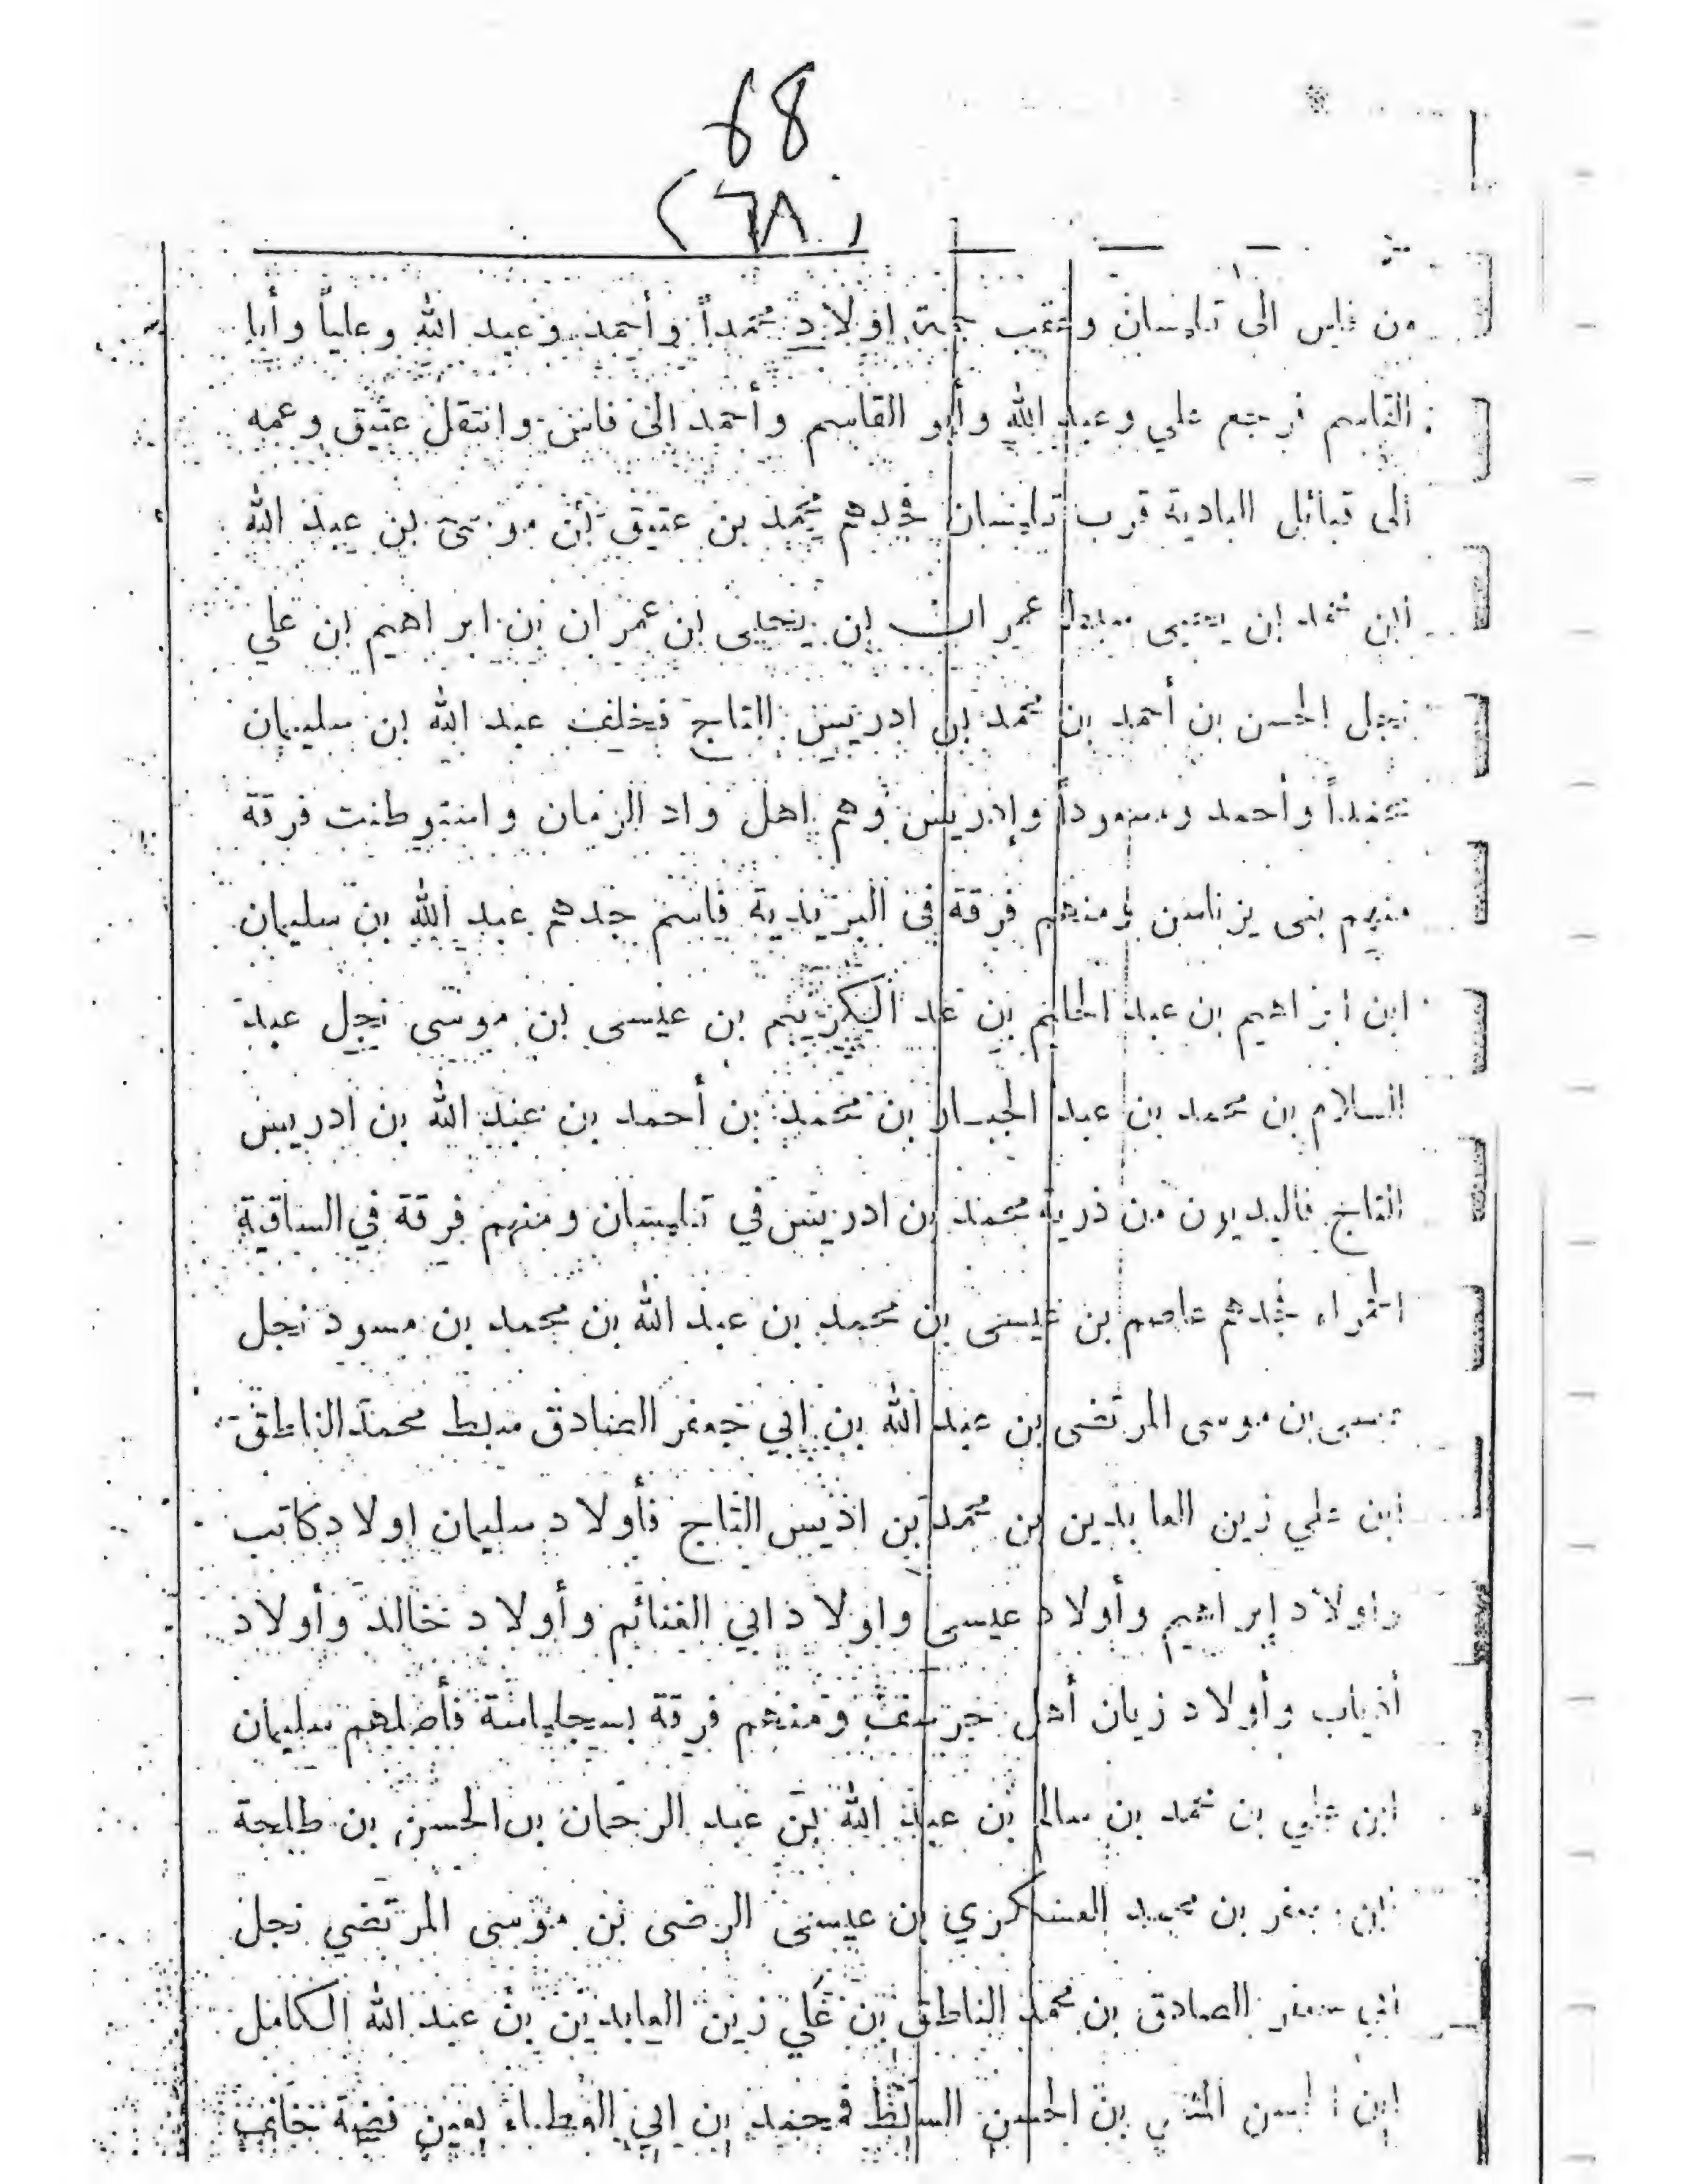 68
(٦٨)
من فاس الى تلمسان وعقب خمسة اولاد محمداً وأحمد وعبد الله وعلياً وأبا
القاسم فرجع علي وعبد الله وأبو القاسم وأحمد الى فاس وانتقل عتيق وعمه
الى قبائل البادية قرب تلمسان فجدهم محمد بن عتيق بن موسى بن عبد الله
ابن محمد بن يحيى عمران بن يحيى بن عمران بن ابراهيم بن علي
نجل الحسن بن أحمد بن محمد بن ادريس التاج فخلف عبد الله بن سليمان
محمداً وأحمد ومسعوداً وإدريس وهم اهل واد الزمان واستوطنت فرقة
منهم بنى يزناسن ومنهم فرقة فى اليزيدية فاسم جدهم عبد الله بن سليمان
ابن ابراهيم بن عبد الحليم بن عد الكريم بن عيسى بن موسى نجل عبد
السلام بن محمد بن عبد الجبار بن محمد بن أحمد بن عبد الله بن ادريس
التاج من ذرية محمد بن ادريس في تلمسان ومنهم فرقة في الساقية
الحمراء جدهم عاصم بن عيسى بن محمد بن عبد الله بن محمد بن مسود نجل
عيسى بن موسى المرتضى بن عبد الله بن ابي جعفر الصادق سبط محمد الناطق
ابن علي زين العابدين بن محمد بن اديس التاج فأولاد سليمان اولاد كاتب
واولاد إبراهيم وأولاد عيسى واولاد ابي الغنائم وأولاد خالد وأولاد
أذياب وأولاد زيان أهل جرسيف ومنهم فرقة بسجلماسة فأصلهم سليمان
ابن علي بن محمد بن سالم بن عبد الله بن عبد الرحمان بن الحسن بن طلحة
ابن جعفر بن محمد العسكري بن عيسى الرضى بن موسى المرتضي نجل
ابي جعفر الصادق بن محمد الناطق بن علي زين العابدين بن عبد الله الكامل
ابن الحسن المثنى بن الحسن السبط فمحمد بن ابي العطاء بعين فضة خلف